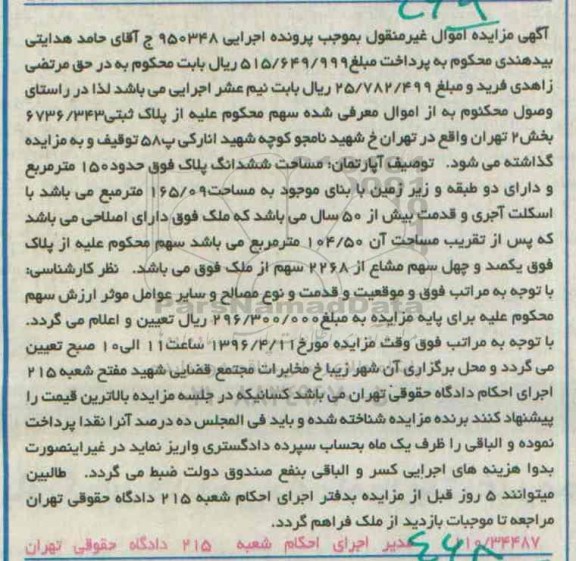 آگهی مزایده اموال غیرمنقول بموجب پرونده اجرایی ۹۵۰۳۴۸ ج آقای حامد هدایتی
بیدهندی محکوم به پرداخت مبلغ۵۱۵/۶۴۹/۹۹۹ ریال بابت محکوم به در حق مرتضی
زاهدی فرید و مبلغ ۲۵/۷۸۲/۴۹۹ ریال بابت نیم عشر اجرایی می باشد لذا در راستای
وصول محکوم به از اموال معرفی شده سهم محکوم علیه از پلاک ثبتی۶۷۳۶/۳۴۳
بخش۲ تهران واقع در تهران خ شهید نامجو کوچه شهید انارکی پ۵۸ توقیف و به مزایده
گذاشته می شود. توصیف آپارتمان: مساحت ششدانگ پلاک فوق حدود۱۵۰ مترمربع
و دارای دو طبقه و زیر زمین با بنای موجود به مساحت۱۶۵/۰۹ مترمبع می باشد با
اسکلت آجری و قدمت بیش از ۵۰ سال می باشد که ملک فوق دارای اصلاحی می باشد
که پس از تقریب مساحت آن ۱۰۴/۵۰ مترمربع می باشد سهم محکوم علیه از پلاک
فوق یکصد و چهل سهم مشاع از ۲۲۶۸ سهم از ملک فوق می باشد. نظر کارشناسی:
با توجه به مراتب فوق و موقعیت و قدمت و نوع مصالح و سایر عوامل موثر ارزش سهم
محکوم علیه برای پایه مزایده به مبلغ۲۹۶/۳۰۰/۰۰۰ ریال تعیین و اعلام می گردد.
با توجه به مراتب فوق وقت مزایده مورخ۱۳۹۶/۴/۱۱ ساعت۱۱ الی۱۰ صبح تعیین
می گردد و محل برگزاری آن شهر زیبا خ مخابرات مجتمع قضایی شهید مفتح شعبه ۲۱۵
اجرای احکام دادگاه حقوقی تهران می باشد کسانیکه در جلسه مزایده بالاترین قیمت را
پیشنهاد کنند برنده مزایده شناخته شده و باید فی المجلس ده درصد آنرا نقدا پرداخت
نموده و الباقی را ظرف یک ماه بحساب سپرده دادگستری واریز نماید در غیراینصورت
بدوا هزینه های اجرایی کسر و الباقی بنفع صندوق دولت ضبط می گردد. طالبین
میتوانند ۵ روز قبل از مزایده بدفتر اجرای احکام شعبه ۲۱۵ دادگاه حقوقی تهران
مراجعه تا موجبات بازدید از ملک فراهم گردد.
۲۱۰/۳۴۴۸۷ مدیر اجرای احکام شعبه ۲۱۵ دادگاه حقوقی تهران
ParsNamadData